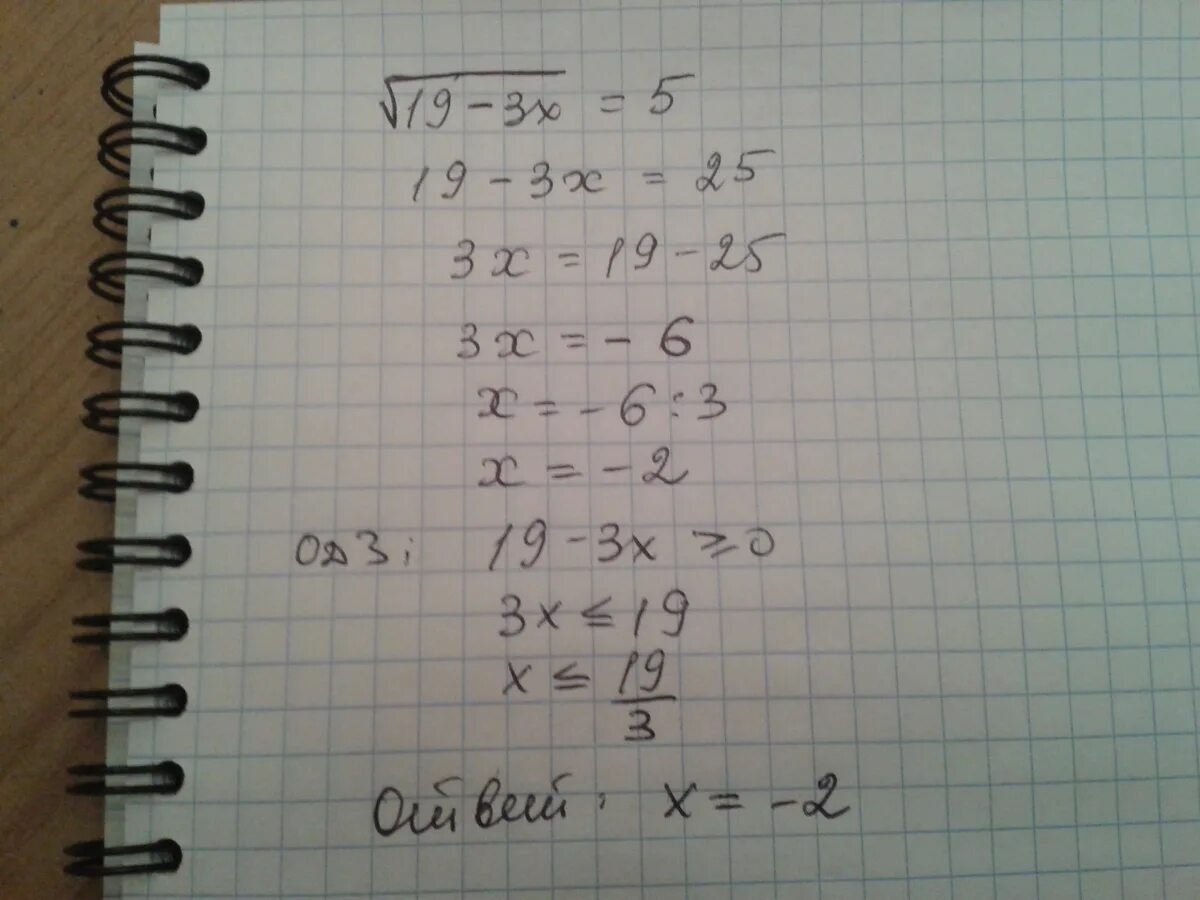 √19 - 3x = 5
19 - 3x = 25
3x = 19 - 25
3x = - 6
x = - 6 : 3
x = - 2
ОДЗ: 19 - 3x ≥ 0
3x ≤ 19
x ≤ 19/3
Ответ: x = -2